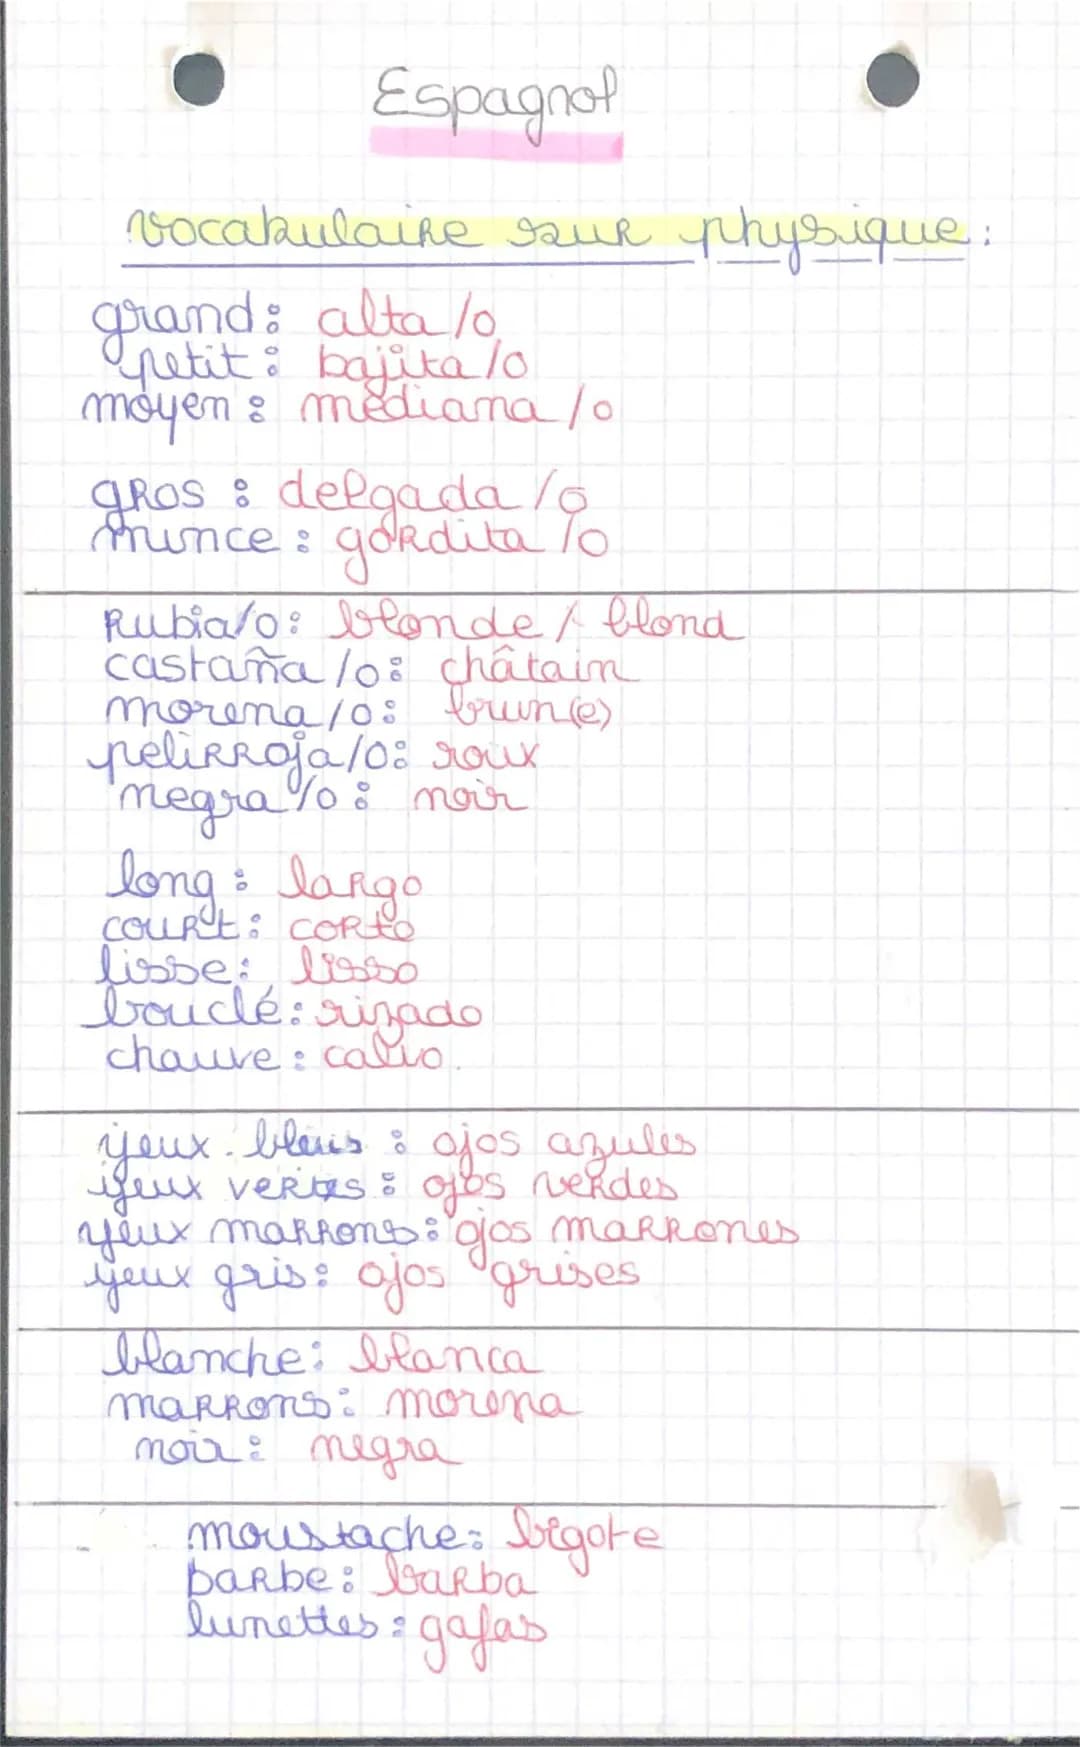 Espagnol
vocabulaire sur physique :
grand : alta/o
petit : bajita/o
moyen : mediana/o
gros : delgada/o
mince : gordita/o
Rubia/o : blonde / blond
castaña/o : châtain
morena/o : brun(e)
pelirroja/o : roux
negra/o : noir
long : largo
court : corto
lisse : lisso
bouclé : rizado
chauve : calvo.
yeux bleus : ojos azules
yeux vertes : ojos verdes
yeux marrons : ojos marrones
yeux gris : ojos grises
blanche : blanca
marrons : morena
noir : negra
moustache : bigote
barbe : barba
lunettes : gafas